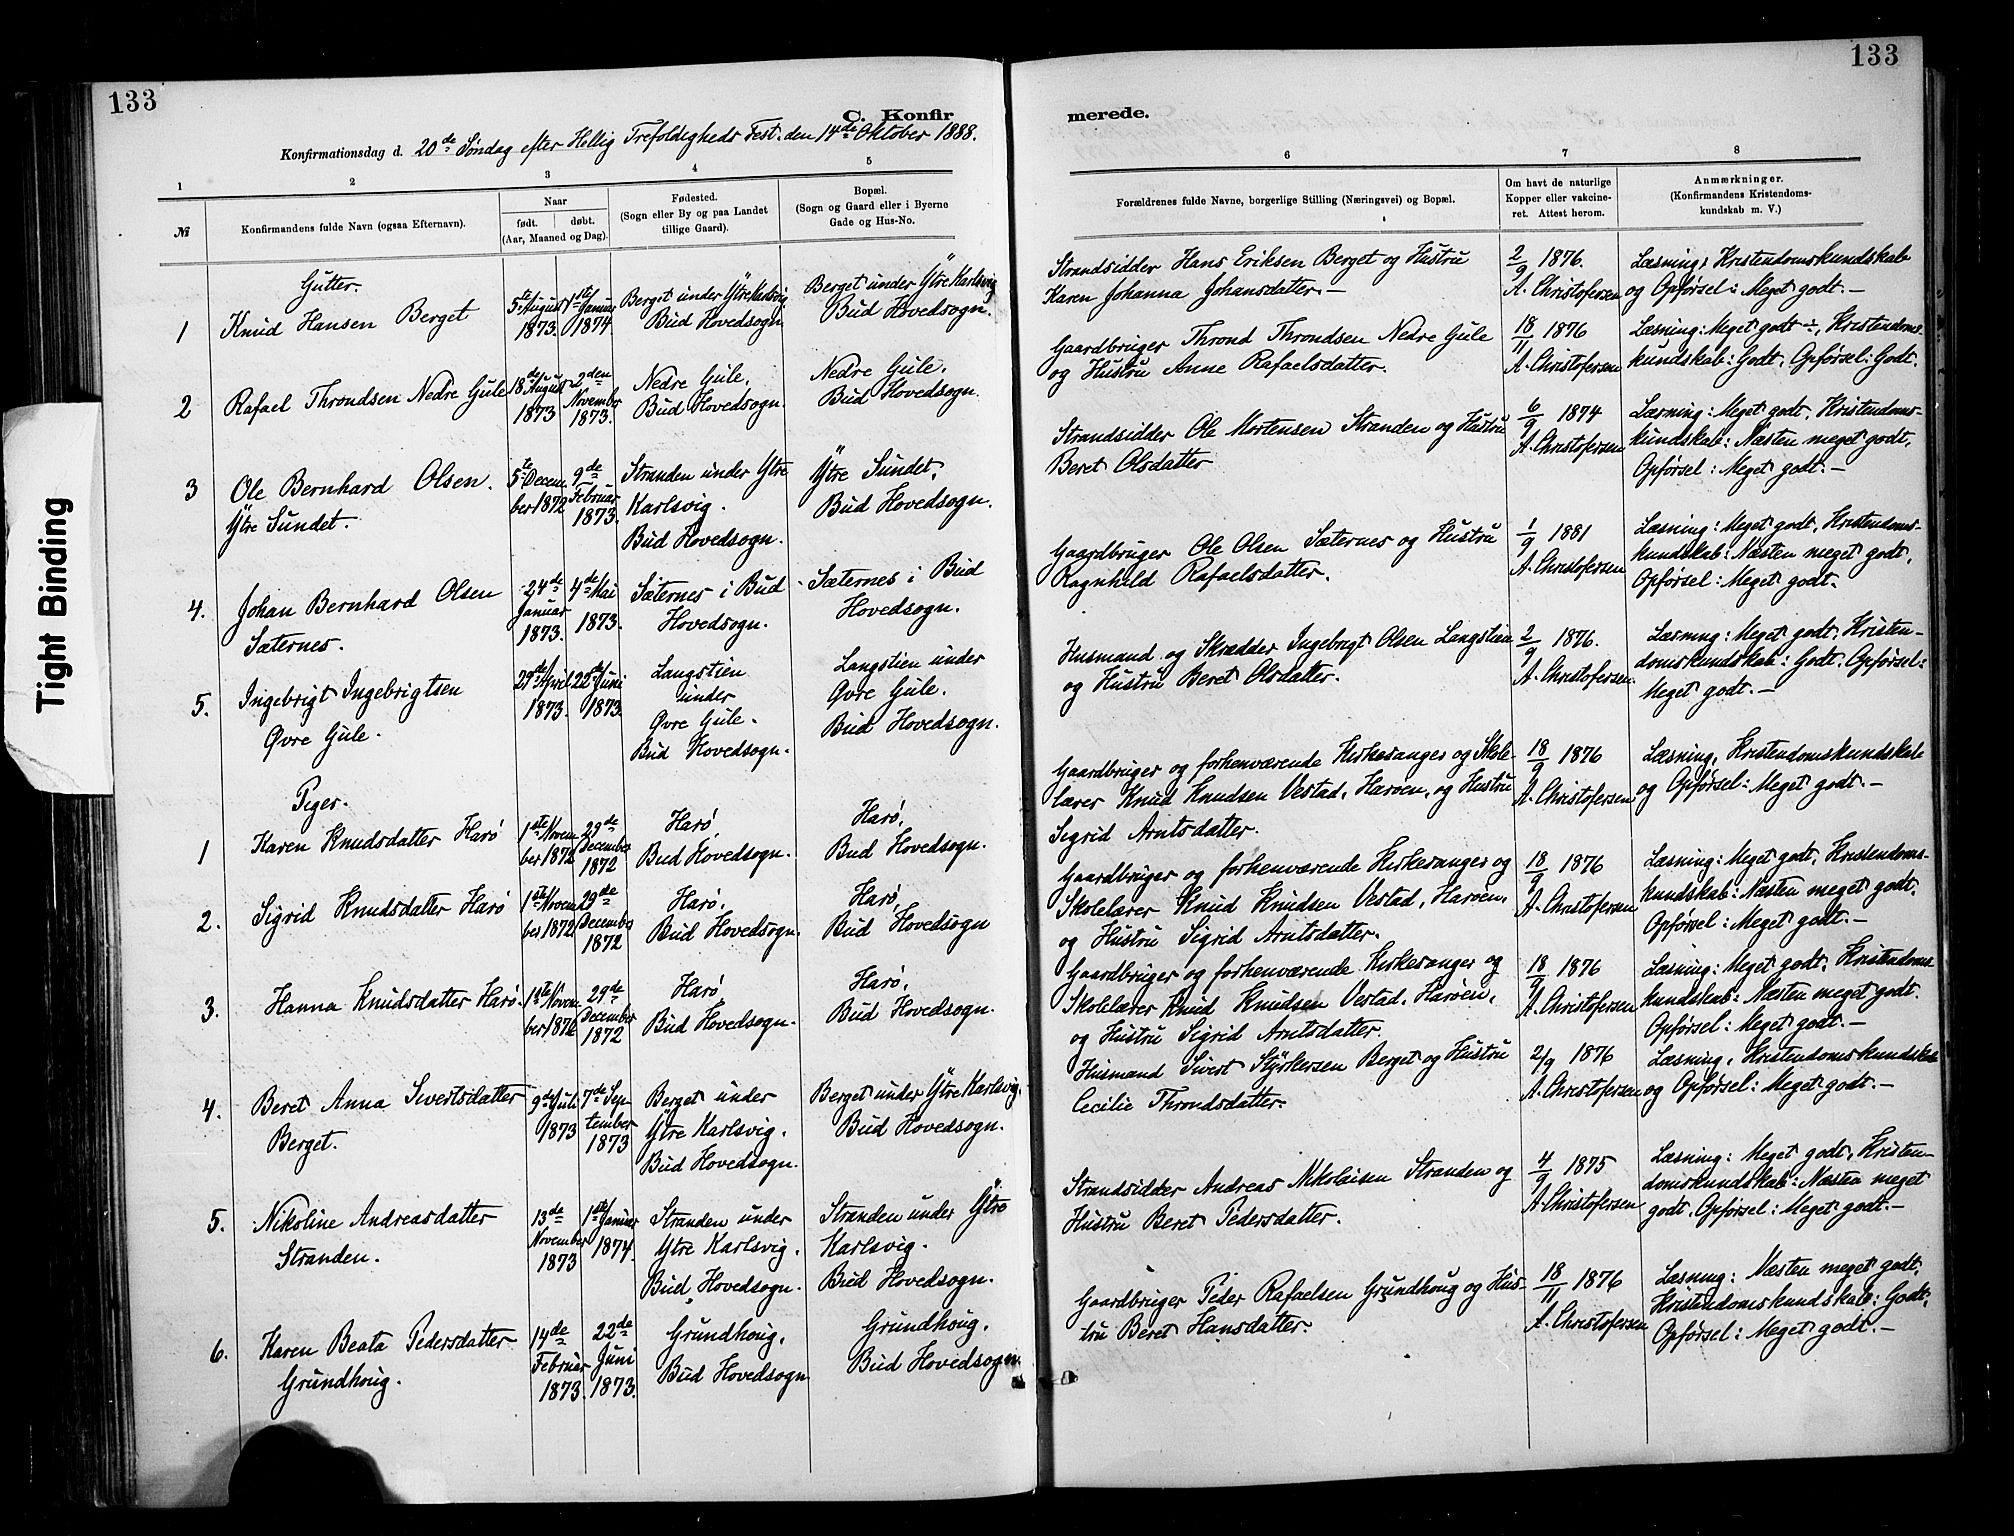 133
133
C. Konfir
merede.
Konfirmationsdag d. 20de Søndag efter Hellig Trefoldigheds Fest. den 14de Oktober 1888.
1
2
3
4
5
6
7
8
№
Konfirmandens fulde Navn (ogsaa Efternavn).
Naar
født.
døbt.
(Aar, Maaned og Dag).
Fødested.
(Sogn eller By og paa Landet
tillige Gaard).
Bopæl.
(Sogn og Gaard eller i Byerne
Gade og Hus-No.
Forældrenes fulde Navne, borgerlige Stilling (Næringsvei) og Bopæl.
Om havt de naturlige
Kopper eller vakcine-
ret. Attest herom.
Anmærkninger.
(Konfirmandens Kristendoms-
kundskab m. V.)
Gutter.
1
Knud Hansen Berget
5te August
1873.
1ste Januar
1874
Berget under Ytre Karlsvig
Bud Hovedsogn
Berget under Ytre Karlsvig
Bud Hovedsogn.
Strandsidder Hans Eriksen Berget og Hustru
Karen Johanna Johansdatter.—
2/9 1876.
A. Christofersen
Læsning, Kristendomskundskab
og Opførsel: Meget godt.—
2
Rafael Throndsen Nedre Gule
18de August
1873
2den
November
1873.
Nedre Gule.
Bud Hovedsogn.
Nedre Gule.
Bud Hovedsogn.
Gaardbruger Thrond Throndsen Nedre Gule
og Hustru Anne Rafaelsdatter.
18/11 1876
A. Christofersen
Læsning: Meget godt ÷, Kristendoms-
kundskab: Godt, Opførsel: Godt.
3
Ole Bernhard Olsen.
Ytre Sundet.
5te Decem
ber 1872
9de
Februar
1873.
Stranden under Ytre
Karlsvig.
Bud Hovedsogn.
Ytre Sundet,
Bud Hovedsogn.
Strandsidder Ole Mortensen Stranden og Hustru
Beret Olsdatter
6/9 1874
A. Christofersen
Læsning: Meget godt, Kristendoms-
kundskab: Næsten meget godt,
Opførsel: Meget godt.—
4.
Johan Bernhard Olsen
Sæternes.
24de
Januar
1873.
4de Mai
1873.
Sæternes i Bud
Hovedsogn.
Sæternes i Bud
Hovedsogn.
Gaardbruger Ole Olsen Sæternes og Hustru
Ragnhild Rafaelsdatter.
1/9 1881
A. Christofersen
Læsning: Meget godt, Kristendoms-
kundskab: Næsten meget godt,
Opførsel: Meget godt.
5.
Ingebrigt Ingebrigtsen
Øvre Gule.
29de April
1873.
22de Juni
1873.
Langstien
under
Øvre Gule.
Bud Hovedsogn.
Langstien under
Øvre Gule.
Bud Hovedsogn.
Husmand og Skrædder Ingebrigt Olsen Langstien
og Hustru Beret Olsdatter.
2/9 1876.
A. Christofersen.
Læsning: Meget godt, Kristen-
domskundskab: Godt. Opførsel:
Meget godt.—
Piger.
1
Karen Knudsdatter Harø
1ste Novem
ber 1872
29de
December
1872
Harø,
Bud Hovedsogn.
Harø,
Bud Hovedsogn.
Gaardbruger og forhenværende Kirkesanger og Skole-
lærer Knud Knudsen Vestad, Harøen, og Hustru
Sigrid Arntsdatter.
18/9 1876
A. Christofersen
Læsning, Kristendomskundskab
og Opførsel: Meget godt.—
2.
Sigrid Knudsdatter Harø
1ste Novem
ber 1872
29de
December
1872
Harø,
Bud Hovedsogn.
Harø,
Bud Hovedsogn
Gaardbruger og forhenværende Kirkesanger og
Skolelærer Knud Knudsen Vestad, Harøen,
og Hustru Sigrid Arntsdatter.
18/9 1876
A. Christofersen
Læsning: Meget godt, Kristendoms-
kundskab: Næsten meget godt.
Opførsel: Meget godt.—
3.
Hanna Knudsdatter Harø.
1ste Novem
ber 1872
29de
December
1872
Harø,
Bud Hovedsogn.
Harø,
Bud Hovedsogn.
Gaardbruger og forhenværende Kirkesanger og
Skolelærer Knud Knudsen Vestad, Harøen,
og Hustru Sigrid Arntsdatter.
18/9 1876
A. Christofersen
Læsning: Meget godt, Kristendoms
kundskab: Næsten meget godt.
Opførsel: Meget godt.—
4.
Beret Anna Sivertsdatter
Berget.
9de Juli
1873
7de Sep-
tember
1873
Berget under
Ytre Karlsvig.
Bud Hovedsogn.
Berget under Ytre Karlsvig.
Bud Hovedsogn.
Husmand Sivert Styrkersen Berget og Hustru
Cecilie Throndsdatter.
2/9 1876
A. Christofersen
Læsning, Kristendomskundskab
og Opførsel: Meget godt.—
5.
Nikoline Andreasdatter
Stranden.
13de
November
1873
1ste Januar
1874.
Stranden under
Ytre Karlsvig.
Bud Hovedsogn.
Stranden under Ytre
Karlsvig.
Bud Hovedsogn.
Strandsidder Andreas Nikolaisen Stranden og
Hustru Beret Pedersdatter.
4/9 1875
A. Christofersen
Læsning: Meget godt, Kristen-
domskundskab: Næsten meget
godt. Opførsel: Meget godt.—
6.
Karen Beata Pedersdatter
Grundhoug.
14de
Februar
1873.
22de
Juni
1873.
Grundhoug,
Bud Hovedsogn
Grundhoug.
Bud Hovedsogn.
Gaardbruger Peder Rafaelsen Grundhoug og Hus-
tru Beret Hansdatter.
18/11 1876
A. Christofersen
Læsning: Næsten meget godt,
Kristendomskundskab: Godt,
Opførsel: Meget godt.—
Tight Binding